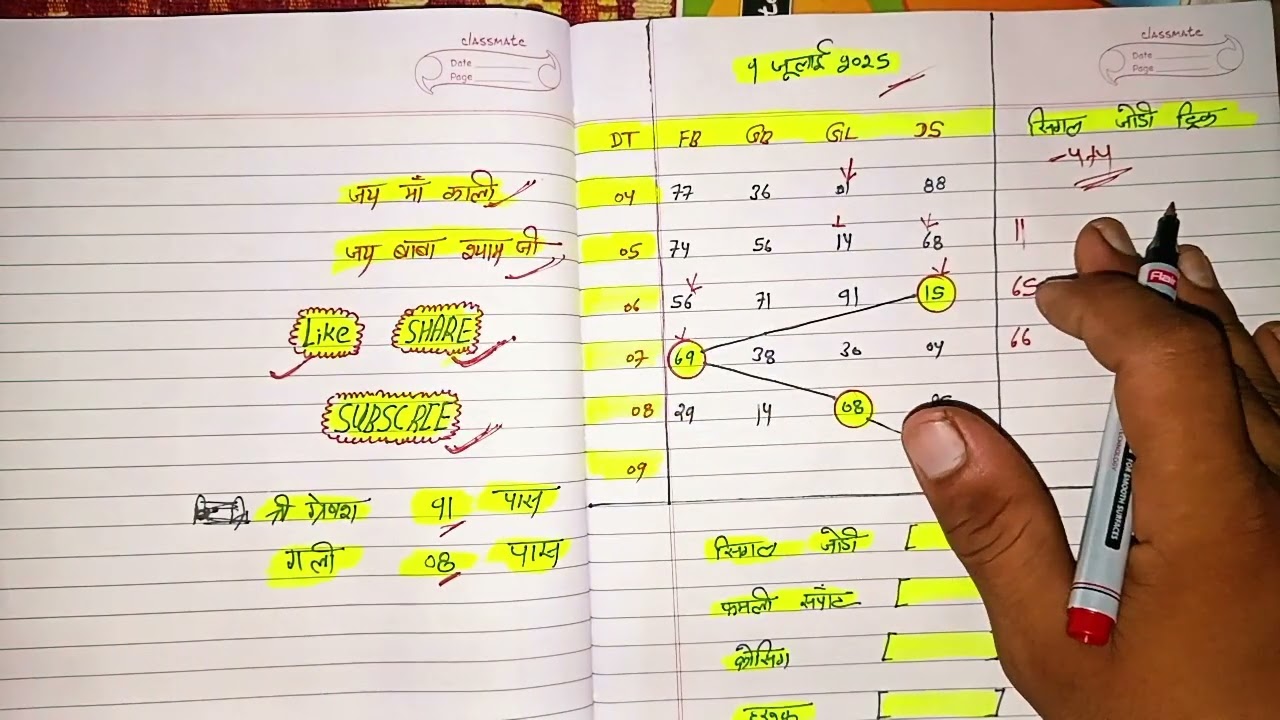 classmate
Date
Page
जय माँ काली
जय बाबा श्याम जी
Like SHARE
SUBSCRIE
श्री गणेश 91 पास
गली 08 पास
classmate
Date
Page
9 जूलाई 2025
DT FB GB GL DS
04 77 36 88
05 74 56 14 68
06 56 71 91 15
07 69 38 30 04
08 29 14 08
09
सिगल जोडी ट्रिक
-4+4
11
65
66
सिगल जोडी [
फमली सपोट [
क्रोसिग [
हरुफ [
Flair
FOR SMOOTH SURFACES